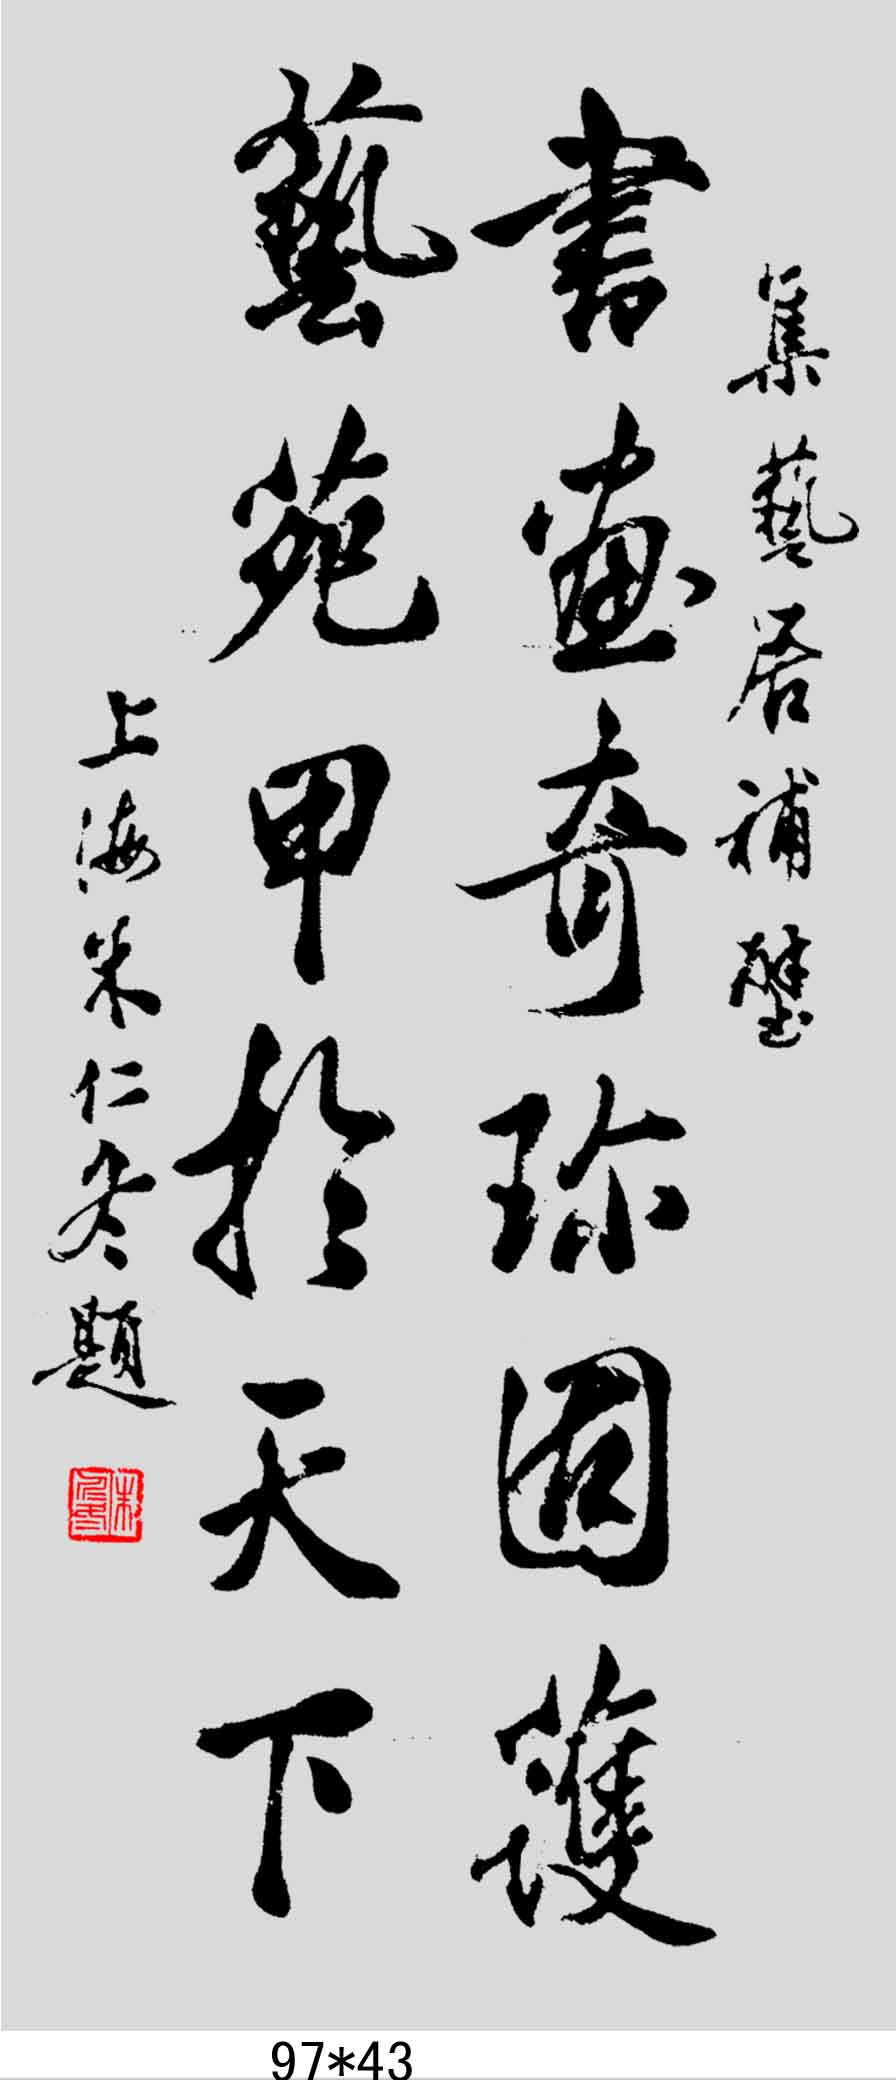 集藝居補壁
書畫奇珍固護
藝苑甲於天下
上海朱仁冬題
97*43